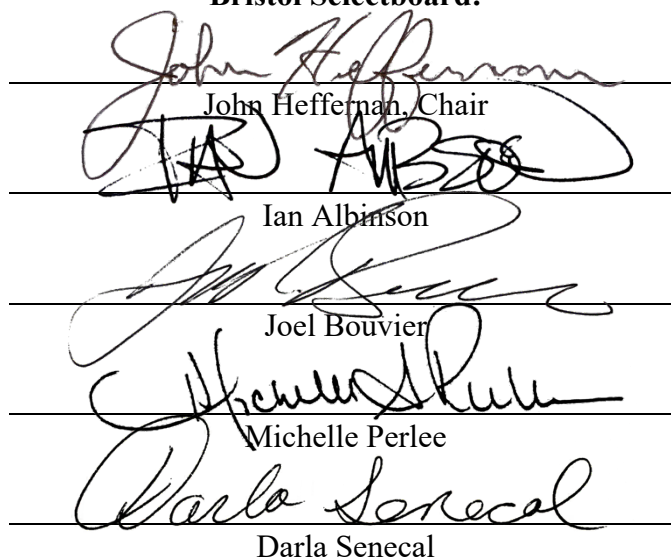 Bristol Selectboard:
John Heffernan
John Heffernan, Chair
Ian Albinson
Joel Bouvier
Michelle Perlee
Darla Senecal
Darla Senecal